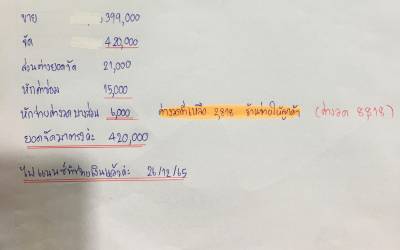 ขาย ,399,000
จัด 420,000
ส่วนต่างยอดจัด 21,000
หักค่าซ่อม 15,000
หักจ่ายค่างวดบางส่วน 6,000 ค่างวดที่เหลือ 2,818 ร้านจ่ายให้ลูกค้า (ค่างวด 8,818)
ยอดจัดมาตรงค่ะ 420,000
ไฟแนนซ์จ่ายเงินแล้วค่ะ 26/12/65